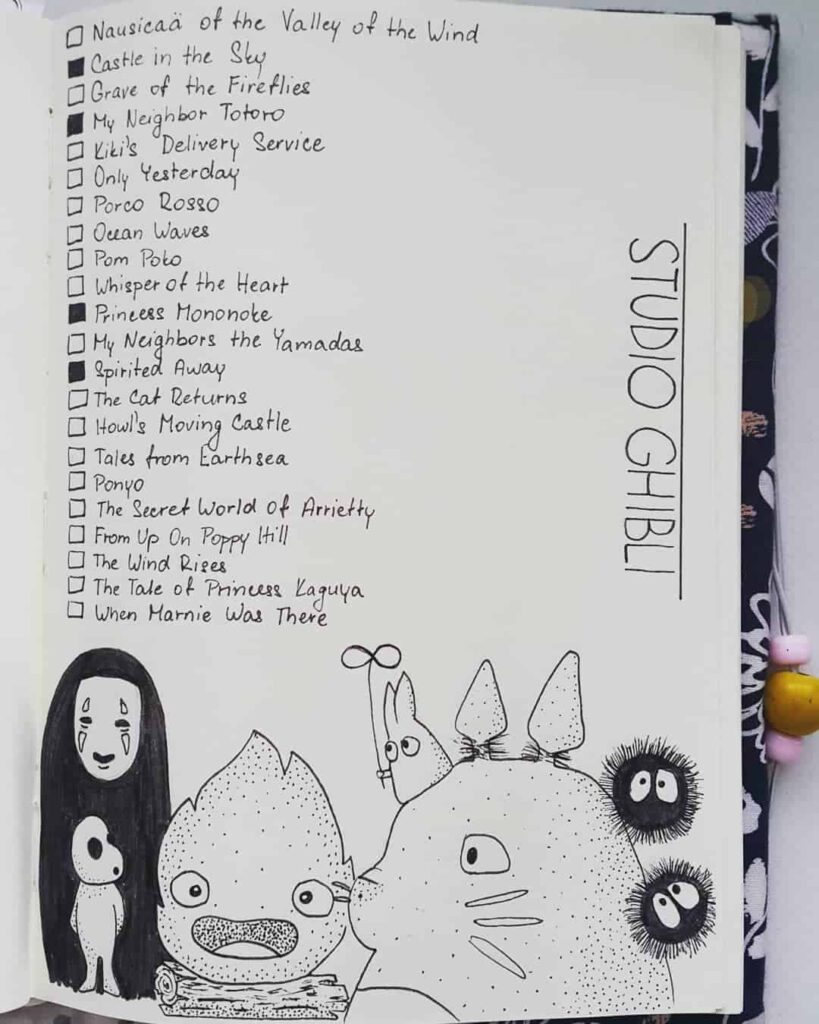 Nausicaä of the Valley of the Wind
Castle in the Sky
Grave of the Fireflies
My Neighbor Totoro
Kiki's Delivery Service
Only Yesterday
Porco Rosso
Ocean Waves
Pom Poko
Whisper of the Heart
Princess Mononoke
My Neighbors the Yamadas
Spirited Away
The Cat Returns
Howl's Moving Castle
Tales from Earthsea
Ponyo
The Secret World of Arrietty
From Up On Poppy Hill
The Wind Rises
The Tale of Princess Kaguya
When Marnie Was There
STUDIO GHIBLI